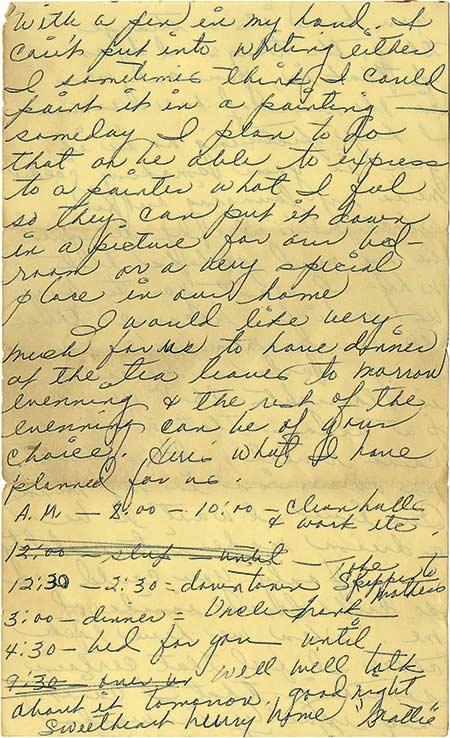 With a pen in my hand. I
can't put into writing either
I sometimes think I could
paint it in a painting —
someday I plan to do
that or be able to express
to a painter what I feel
so they can put it down
in a picture for our bed-
room or a very special
place in our home
I would like very
much for us to have dinner
at the tea leaves to morrow
evenning & the rest of the
evenning can be of your
choice. Here's what I have
planned for us.
A.M — 8:00 - 10:00 — Clean halls
& work etc.
12:00 — sleep until —
12:30 - 2:30 = downtown Take Skipper to Mothers
3:00 — dinner = Uncle
4:30 - bed for you until
9:30 — over well well talk
about it tomorrow, good night
Sweetheart hurry home "Mattie"